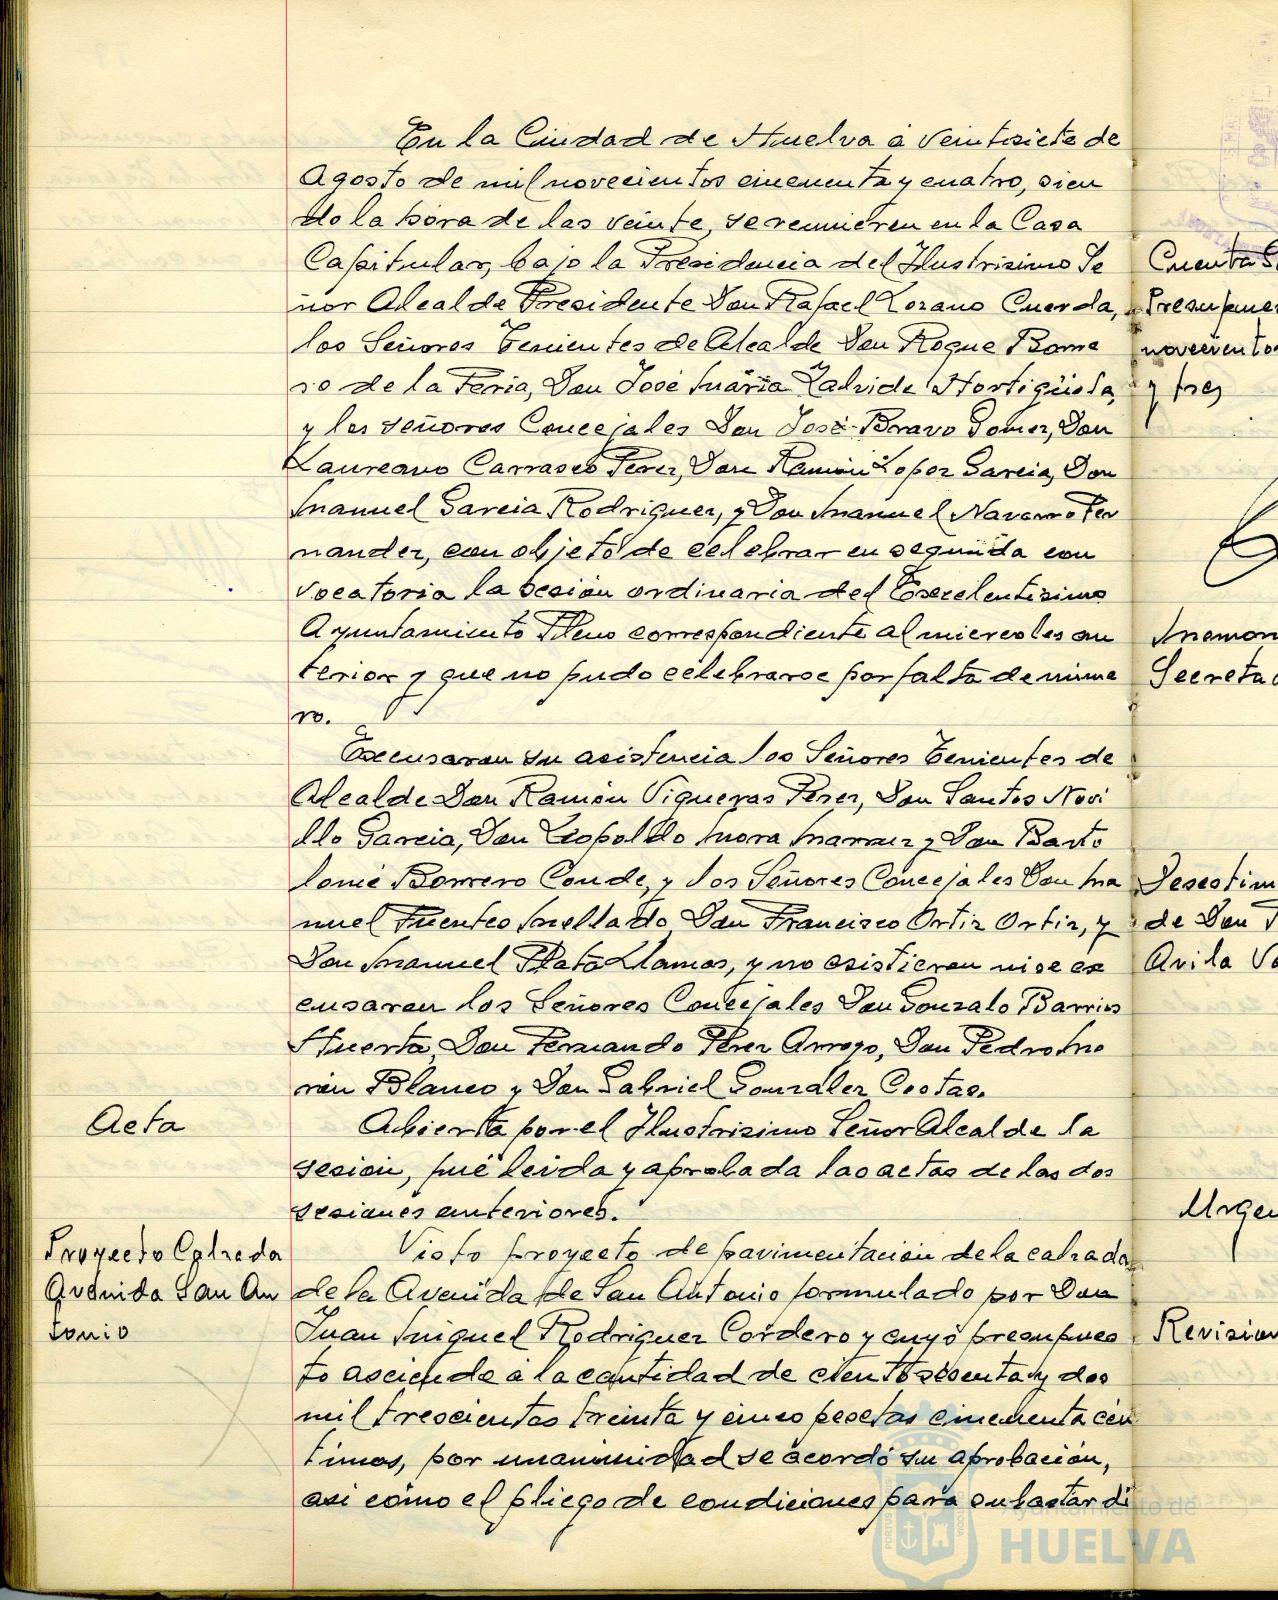 En la Ciudad de Huelva á veintisiete de
Agosto de mil novecientos cincuenta y cuatro, sien
do la hora de las veinte, se reunieron en la Casa
Capitular, bajo la Presidencia del Ilustrisimo Se
ñor Alcalde Presidente Don Rafael Lozano Cuerda,
los Señores Tenientes de Alcalde Don Roque Borre
ro de la Feria, Don José Maria Zalvide Hortigüela,
y los señores Concejales Don José Bravo Gomez, Don
Laureano Carrasco Perez, Don Ramón Lopez Garcia, Don
Manuel Garcia Rodriguez, y Don Manuel Navarro Fer
nandez, con objeto de celebrar en segunda con
vocatoria la sesión ordinaria del Excelentisimo
Ayuntamiento Pleno correspondiente al miercoles an
terior y que no pudo celebrarse por falta de nume
ro.
Excusaron su asistencia los Señores Tenientes de
Alcalde Don Ramón Vigueras Perez, Don Santos Novi
llo Garcia, Don Leopoldo Mora y Don Barto
lomé Borrero Conde, y los Señores Concejales Don Ma
nuel Fuentes Mellado, Don Francisco Ortiz Ortiz, y
Don Manuel Plata Llamas, y no asistieron ni se ex
cusaron los Señores Concejales Don Gonzalo Barrios
Huerta, Don Fernando Pérez Arroyo, Don Pedro Mo
rón Blanco y Don Gabriel Gonzalez Costas.
Acta
Abierta por el Ilustrisimo Señor Alcalde la
sesión, fué leida y aprobada las actas de las dos
sesiones anteriores.
Proyecto Calzada
Avenida San An
tonio
Visto proyecto de pavimentación de la calzada
de la Avenida de San Antonio formulado por Don
Juan Miguel Rodriguez Cordero y cuyo presupues
to asciende a la cantidad de ciento sesenta y dos
mil trescientas treinta y cinco pesetas cincuenta cén
timos, por unanimidad se acordó su aprobación,
asi cómo el pliego de condiciones para subastar di
Cuenta G
Presupues
novecientos
y tres
Memori
Secreta
Desestim
de Don
Avila Va
Urgen
Revision
Ayuntamiento de
HUELVA